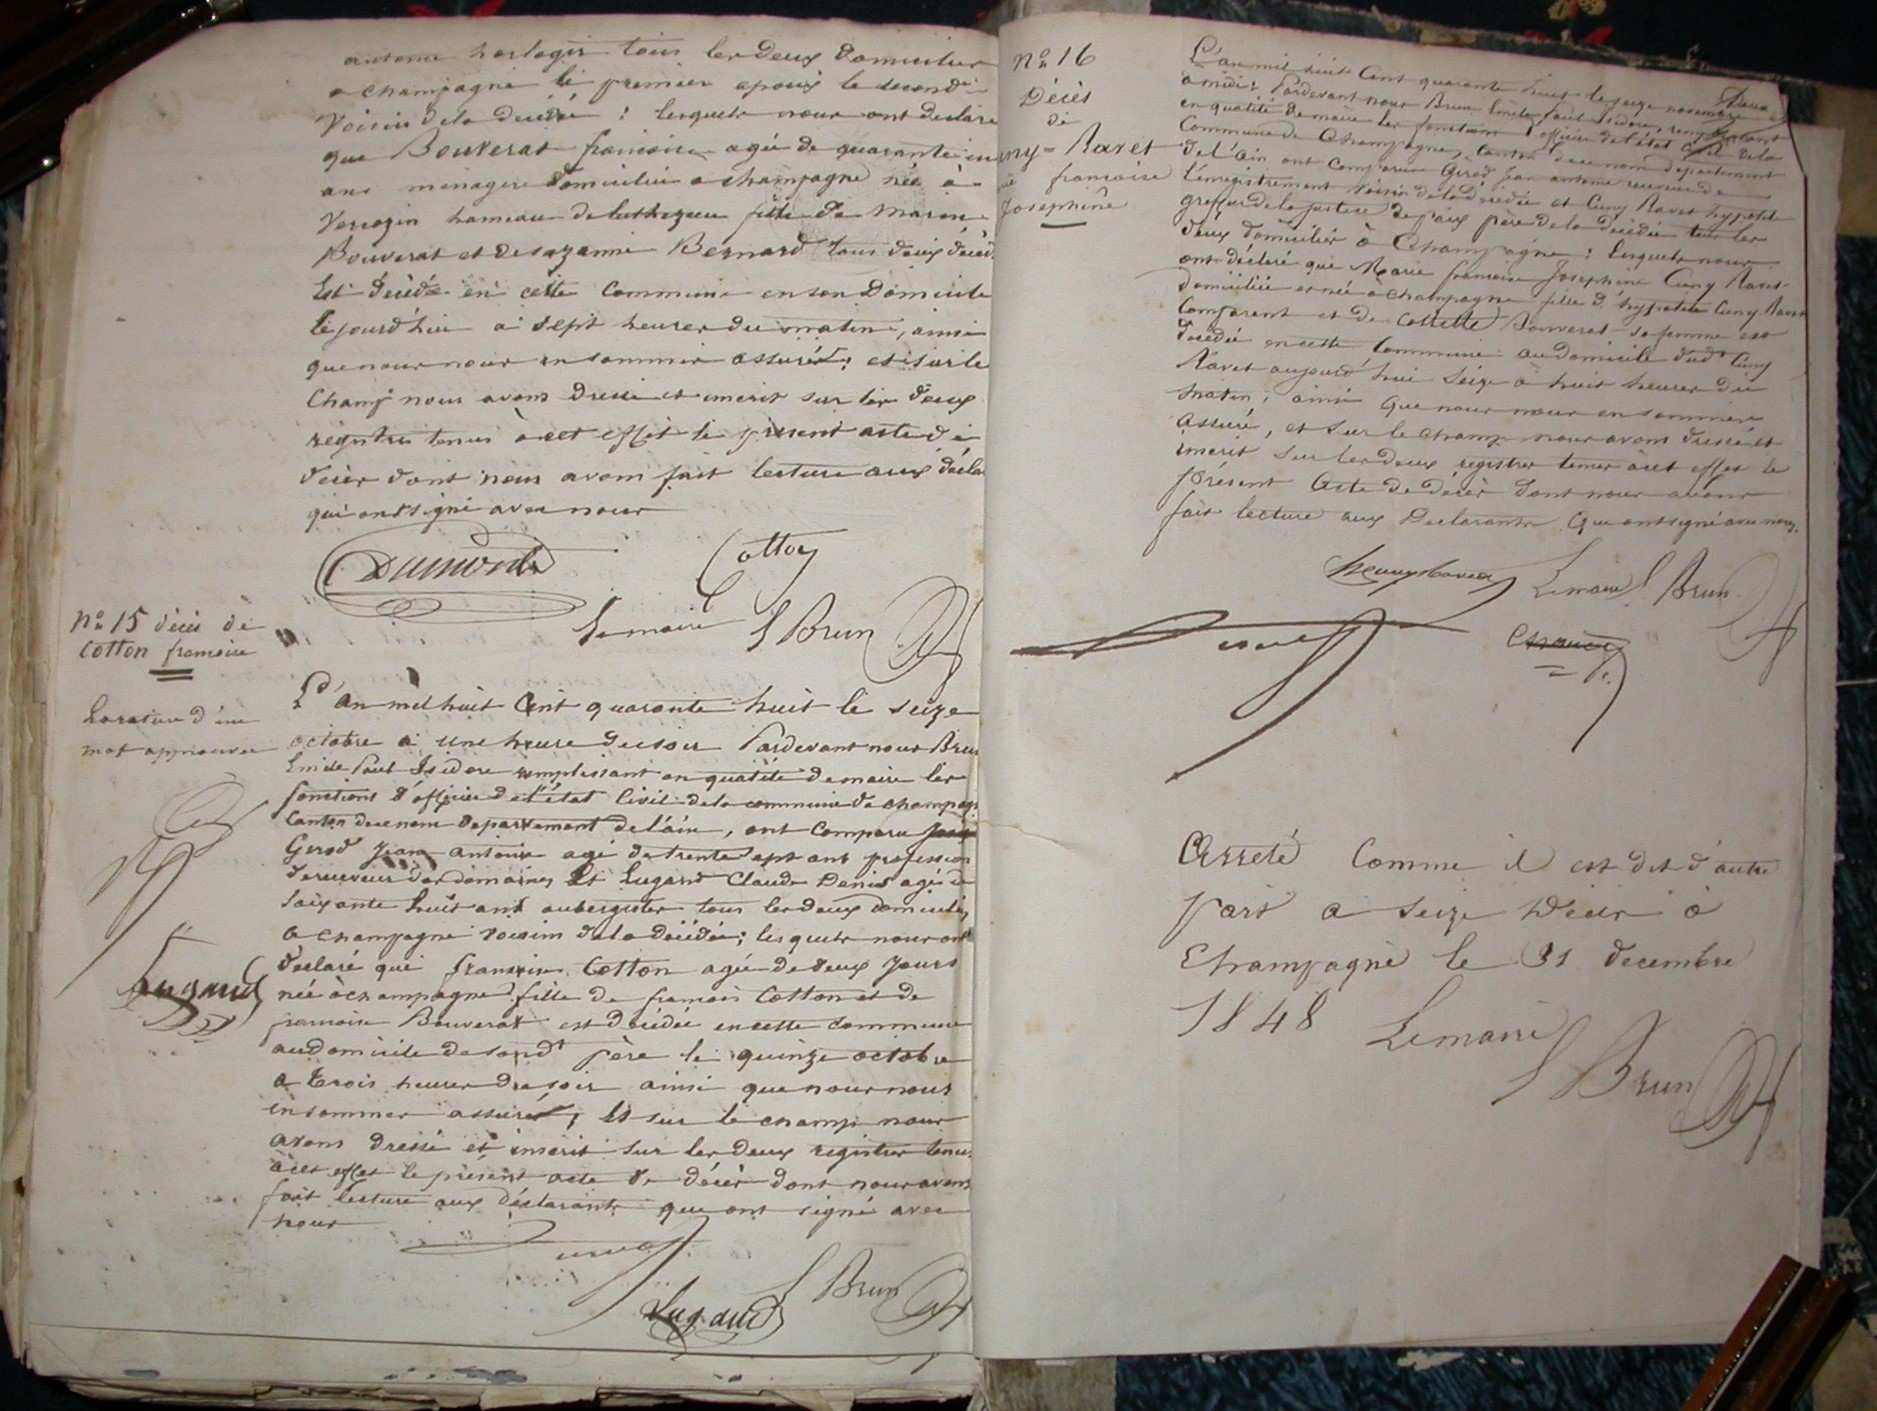 antoine horloger tous les deux domiciliés
a champagne le premier epoux le second
voisin dela decédé : lesquels nous ont declaré
que Bouverat francoise agée de quarante
ans menagere domiciliée a champagne née à
hameau de luthezieu fille de Marin
Bouverat et de suzanne Bernard tous deux décéd
Est décédé en cette commune en son Domicile
cejourd'hui a sept heures du matin, ainsi
que nous nous en sommes assuré ; et sur le
Champ nous avons dressé et inscrit sur les deux
registres tenus à cet effet le présent acte de
décès dont nous avons fait lecture aux décla
qui ont signé avec nous
Dumorts Cotton
Le maire E Brun
No 15 décès de
Cotton francoise
La rature d'un
mot approuvée
Lugand
L'An mil huit Cent quarante huit le seize
octobre à une heure du soir Pardevant nous Brun
Emile Paul Isidore remplissant en qualité de maire les
fonctions d'officier de l'état Civil dela commune de champag
Canton dece nom departement de l'ain, ont Comparu
Girod Jean antoine agé de trente sept ans profession
de receveur des domaines Et Lugand Claude Denis agé de
Soixante huit ans aubergiste tous les deux domiciliés
a champagne voisins dela décédée ; lesquels nous ont
déclaré que francoise Cotton agée de deux jours
née à champagne fille de francois Cotton et de
francoise Bouverat est décédée en cette commune
au domicile de sond père le quinze octobre
a trois heures du soir ainsi que nous nous
en sommes assuré, Et sur le champ nous
avons dressé et inscrit sur les deux registres tenu
à cet effet le présent acte de décès dont nous avons
fait lecture aux déclarants qui ont signé avec
nous
E Brun
Lugand
No 16
Décès
de
Cuny = Ravet
francoise
Josephine
L'an mil huit Cent quarante huit le seize novembre à
a midi, Pardevant nous Brun Emile Paul Isidore, remplissant
en qualité de maire les fonctions d'officier de l'état Civil dela
Commune de Champagne, Canton dece nom département
de l'ain ont comparu Girod Jean antoine receveur de
l'enregistrement voisin dela décédée et Cuny Ravet hypolite
greffier de la justice de paix père de la décédée tous les
deux domiciliés à Champagne : lesquels nous
ont déclaré que Marie francoise Josephine Cuny Ravet
domiciliée et née à champagne fille d'hypolite Cuny Ravet
Comparant et de Collette Bouverat sa femme est
décédée en cette Commune au domicile dud Cuny
Ravet aujourd'hui Seize à huit heures du
matin, ainsi que nous nous en sommes
assuré, et sur le champ nous avons dressé et
inscrit sur les deux registres tenus à cet effet le
Présent Acte de décès dont nous avons
fait lecture aux Declarants Qui ont signé avec nous.
Cuny Ravet Le maire E Brun
Arreté Comme il est dit d'autre
Part a Seize Décès à
Champagne le 31 decembre
1848 Le maire
E Brun